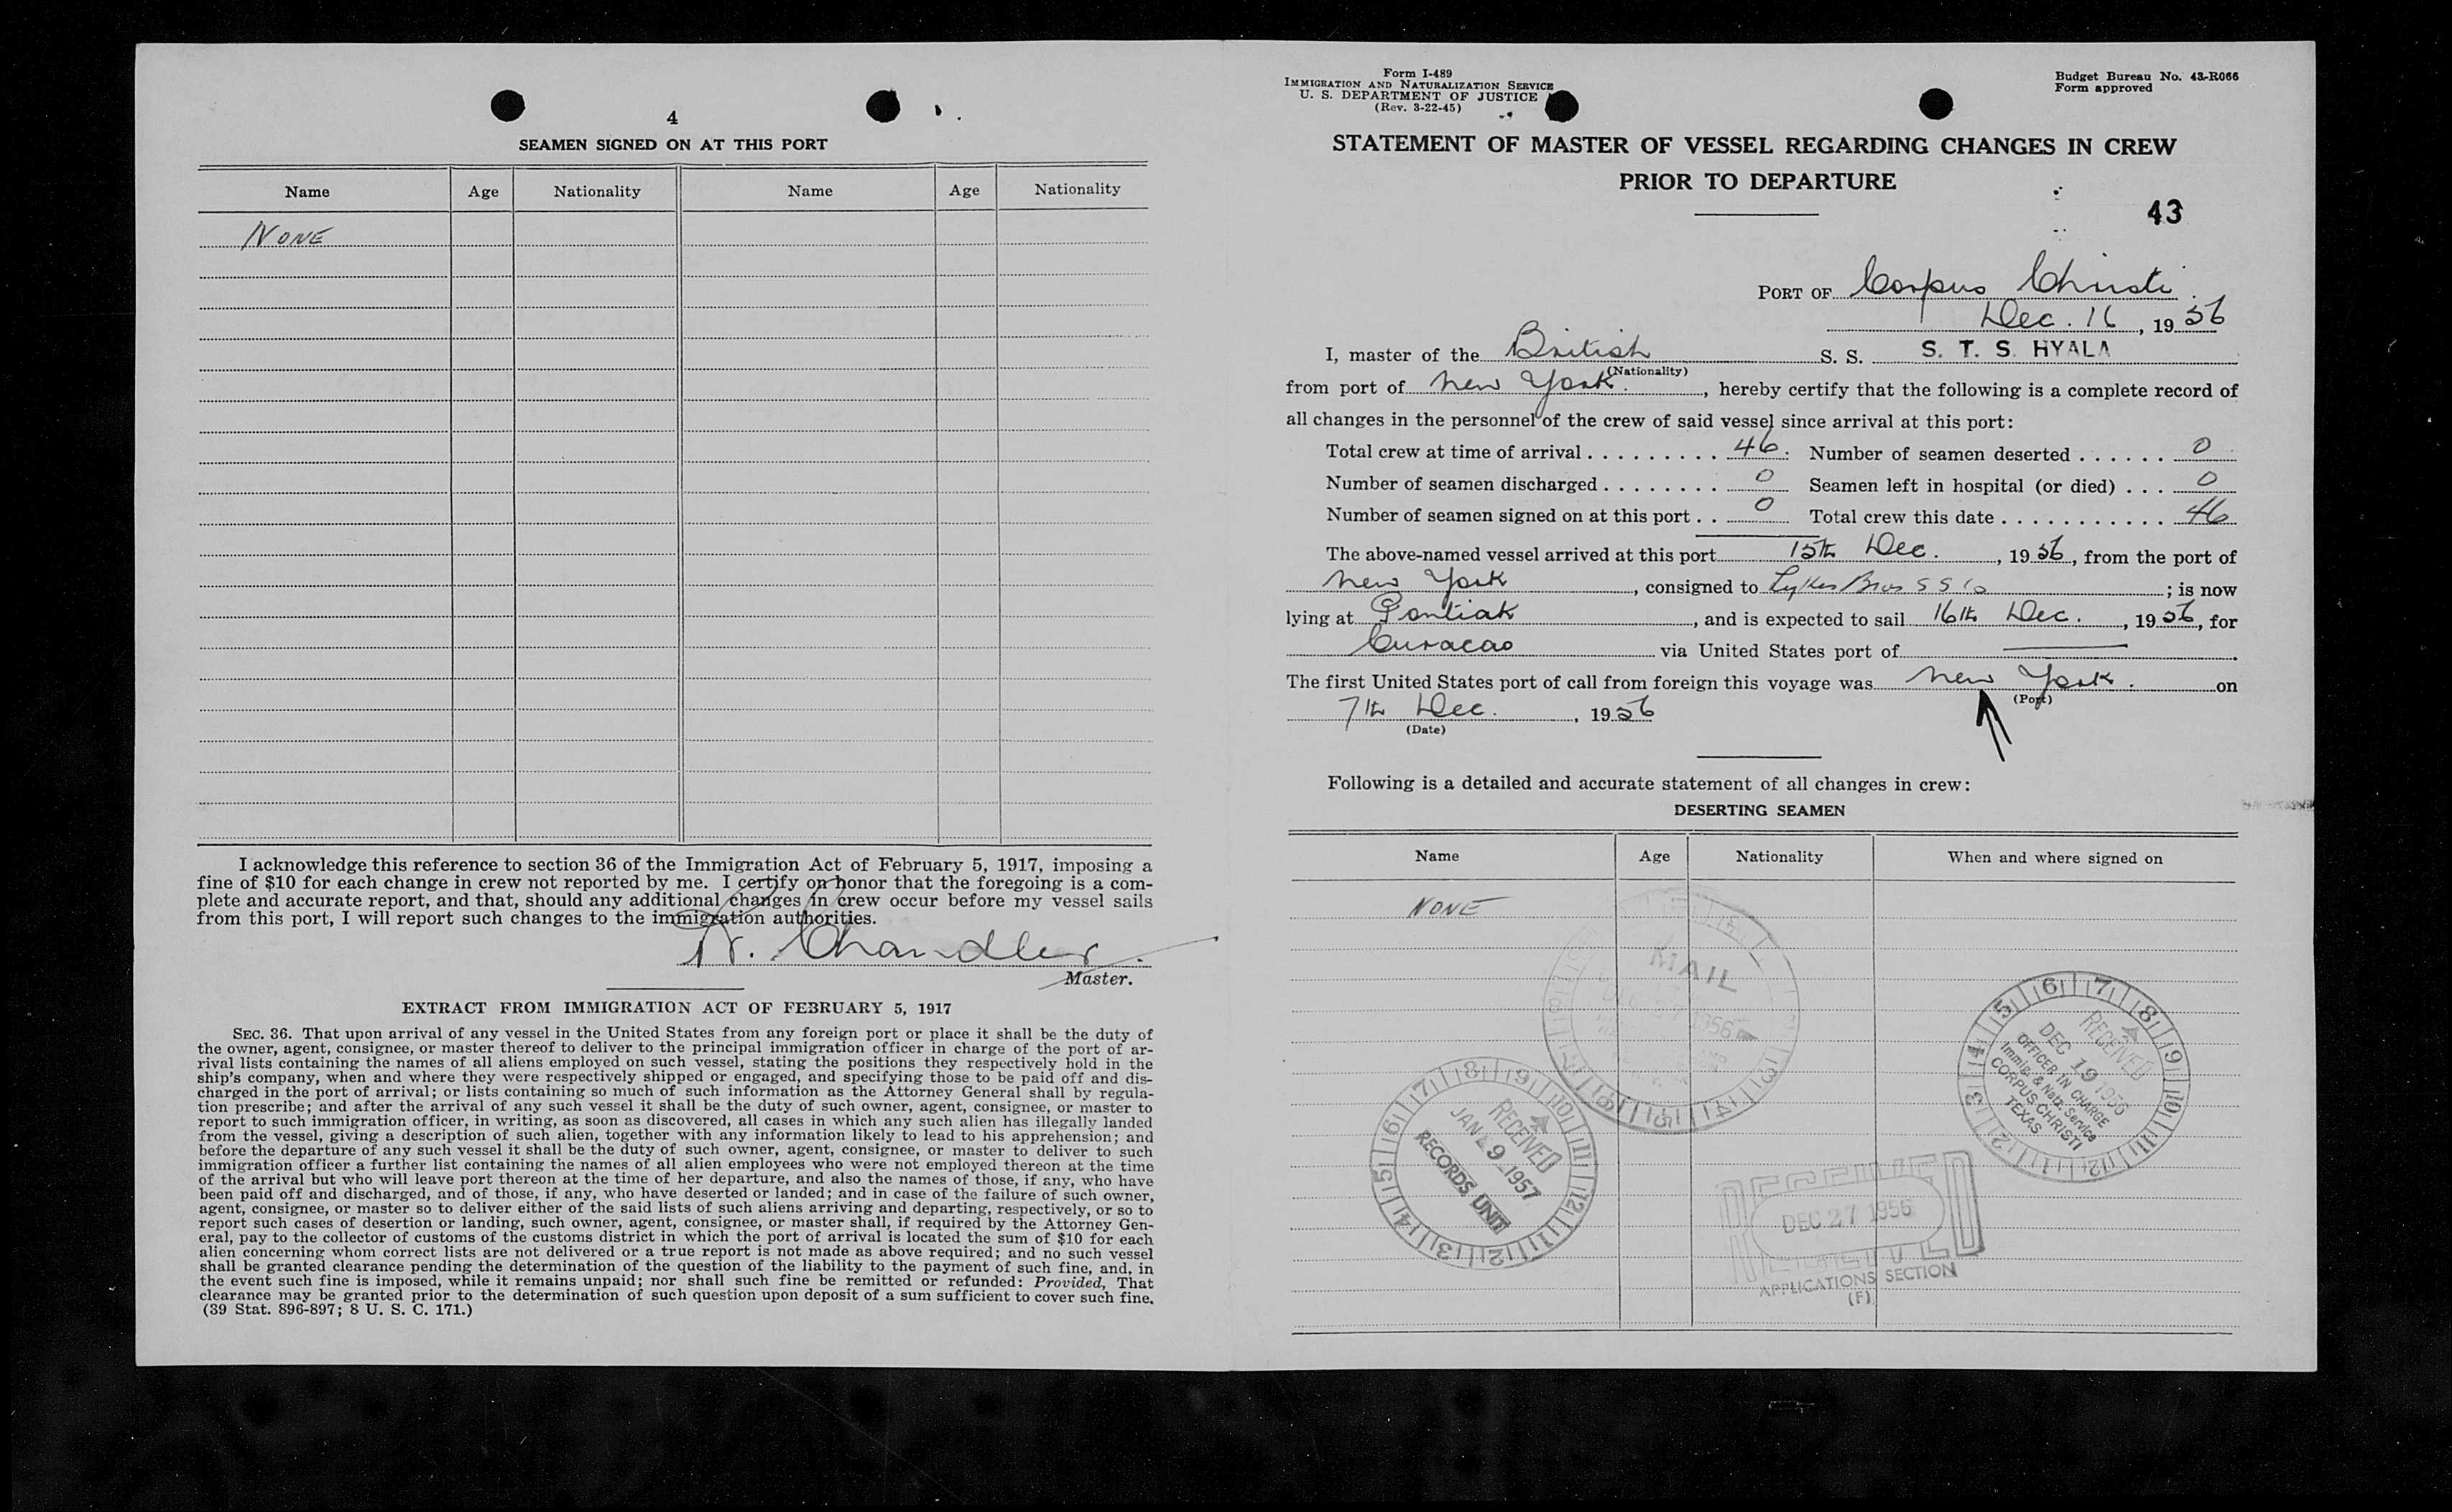 4
SEAMEN SIGNED ON AT THIS PORT
Name Age Nationality Name Age Nationality
NONE
I acknowledge this reference to section 36 of the Immigration Act of February 5, 1917, imposing a
fine of $10 for each change in crew not reported by me. I certify on honor that the foregoing is a com-
plete and accurate report, and that, should any additional changes in crew occur before my vessel sails
from this port, I will report such changes to the immigration authorities.
Chandler
Master.
EXTRACT FROM IMMIGRATION ACT OF FEBRUARY 5, 1917
SEC. 36. That upon arrival of any vessel in the United States from any foreign port or place it shall be the duty of
the owner, agent, consignee, or master thereof to deliver to the principal immigration officer in charge of the port of ar-
rival lists containing the names of all aliens employed on such vessel, stating the positions they respectively hold in the
ship's company, when and where they were respectively shipped or engaged, and specifying those to be paid off and dis-
charged in the port of arrival; or lists containing so much of such information as the Attorney General shall by regula-
tion prescribe; and after the arrival of any such vessel it shall be the duty of such owner, agent, consignee, or master to
report to such immigration officer, in writing, as soon as discovered, all cases in which any such alien has illegally landed
from the vessel, giving a description of such alien, together with any information likely to lead to his apprehension; and
before the departure of any such vessel it shall be the duty of such owner, agent, consignee, or master to deliver to such
immigration officer a further list containing the names of all alien employees who were not employed thereon at the time
of the arrival but who will leave port thereon at the time of her departure, and also the names of those, if any, who have
been paid off and discharged, and of those, if any, who have deserted or landed; and in case of the failure of such owner,
agent, consignee, or master so to deliver either of the said lists of such aliens arriving and departing, respectively, or so to
report such cases of desertion or landing, such owner, agent, consignee, or master shall, if required by the Attorney Gen-
eral, pay to the collector of customs of the customs district in which the port of arrival is located the sum of $10 for each
alien concerning whom correct lists are not delivered or a true report is not made as above required; and no such vessel
shall be granted clearance pending the determination of the question of the liability to the payment of such fine, and, in
the event such fine is imposed, while it remains unpaid; nor shall such fine be remitted or refunded: Provided, That
clearance may be granted prior to the determination of such question upon deposit of a sum sufficient to cover such fine.
(39 Stat. 896-897; 8 U. S. C. 171.)
Form I-489
IMMIGRATION AND NATURALIZATION SERVICE
U. S. DEPARTMENT OF JUSTICE
(Rev. 3-22-45)
Budget Bureau No. 43-R066
Form approved
STATEMENT OF MASTER OF VESSEL REGARDING CHANGES IN CREW
PRIOR TO DEPARTURE
43
PORT OF Corpus Christi
Dec. 16, 1956
I, master of the British S. S. S. T. S. HYALA
(Nationality)
from port of New York., hereby certify that the following is a complete record of
all changes in the personnel of the crew of said vessel since arrival at this port:
Total crew at time of arrival . . . . . . . . . 46. Number of seamen deserted . . . . . . 0
Number of seamen discharged . . . . . . . . 0 Seamen left in hospital (or died) . . . 0
Number of seamen signed on at this port . . 0 Total crew this date . . . . . . . . . . . 46
The above-named vessel arrived at this port 15th Dec., 1956, from the port of
New York, consigned to Lykes Bros S S Co; is now
lying at Pontiak, and is expected to sail 16th Dec., 1956, for
Curacao via United States port of
The first United States port of call from foreign this voyage was New York. on
(Port)
7th Dec., 1956
(Date)
Following is a detailed and accurate statement of all changes in crew:
DESERTING SEAMEN
Name Age Nationality When and where signed on
NONE
MAIL
DEC 27 1956
RECEIVED
DEC 19 1956
OFFICER IN CHARGE
Immig. & Natz. Service
CORPUS CHRISTI
TEXAS
RECEIVED
JAN 9 1957
RECORDS UNIT
RECEIVED
DEC 27 1956
RECEIVED
APPLICATIONS SECTION
(F)